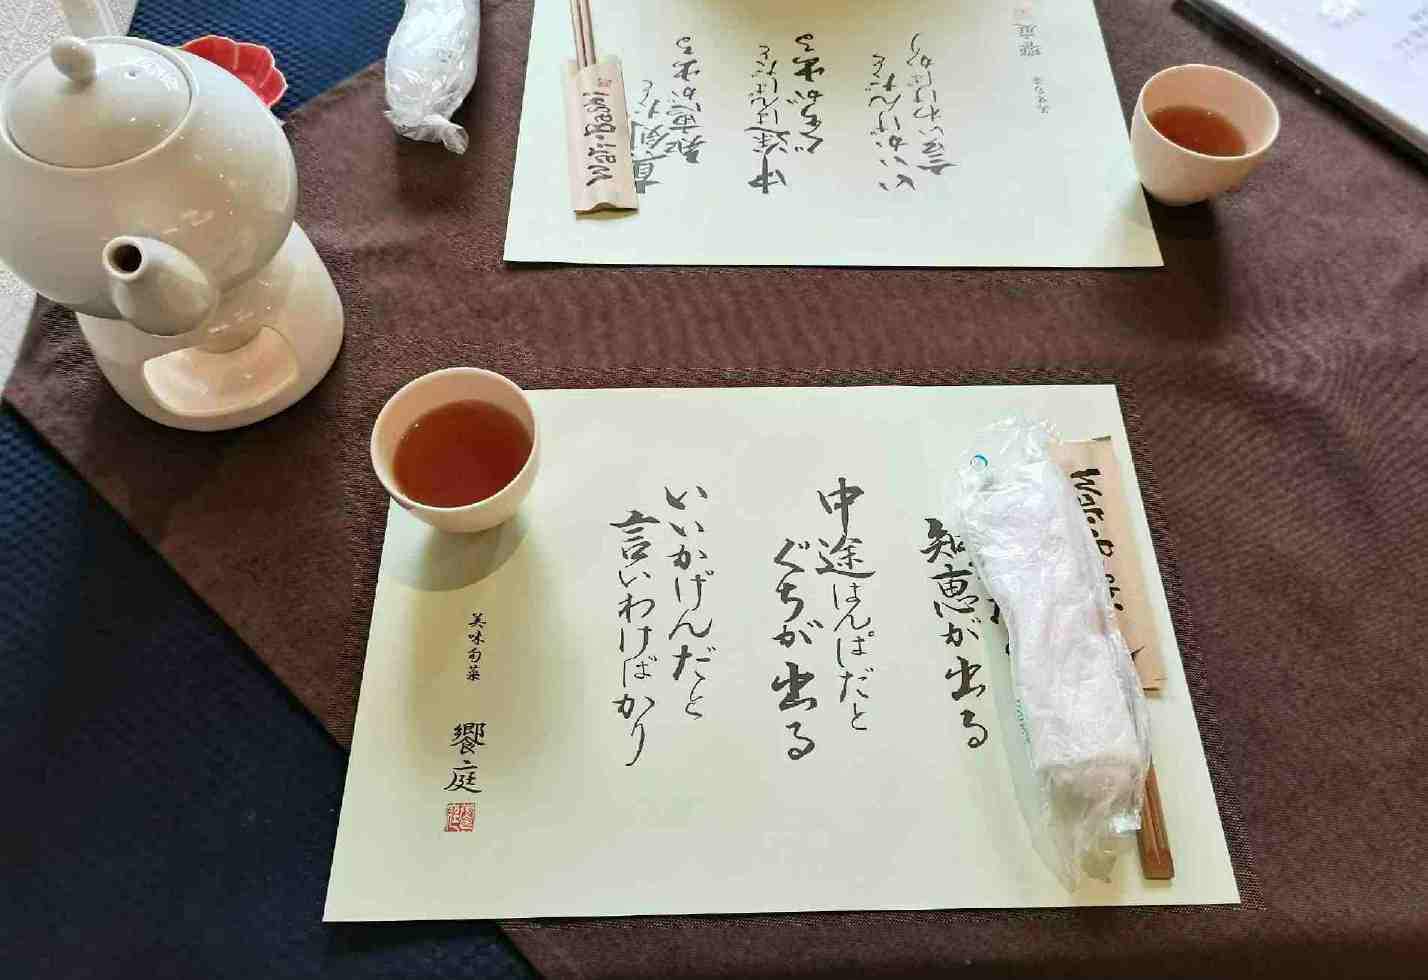 Wari-Bashi
真剣だと
知恵が出る
中途はんぱだと
ぐちが出る
いいかげんだと
言いわけばかり
美味旬菜
饗庭
知恵が出る
中途はんぱだと
ぐちが出る
いいかげんだと
言いわけばかり
美味旬菜
饗庭